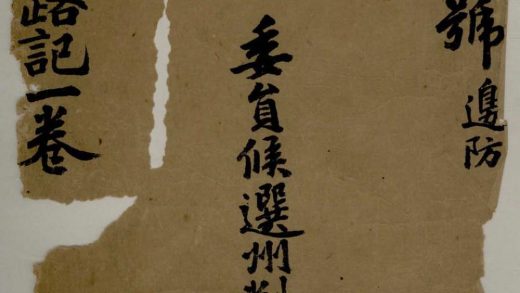 號邊防
委員候選州
路記一卷